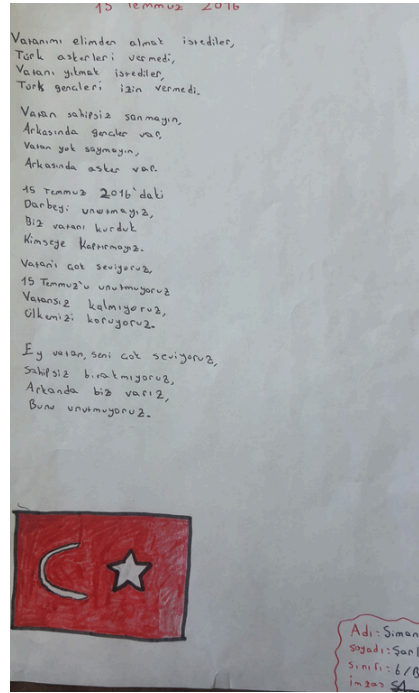 15 Temmuz 2016
Vatanımı elimden almak istediler,
Türk askerleri vermedi,
Vatanı yıkmak istediler,
Türk gençleri izin vermedi.
Vatan sahipsiz sanmayın,
Arkasında gençler var,
Vatan yok saymayın,
Arkasında asker var.
15 Temmuz 2016'daki
Darbeyi unutmayız,
Biz vatanı kurduk
Kimseye Kaptırmayız.
Vatanı çok seviyoruz,
15 Temmuz'u unutmuyoruz
Vatansız kalmıyoruz,
Ülkemizi koruyoruz.
Ey vatan, seni çok seviyoruz,
Sahipsiz bırakmıyoruz,
Arkanda biz varız,
Bunu unutmuyoruz.
Adı:
Soyadı:
Sınıfı: 6/
İmza: